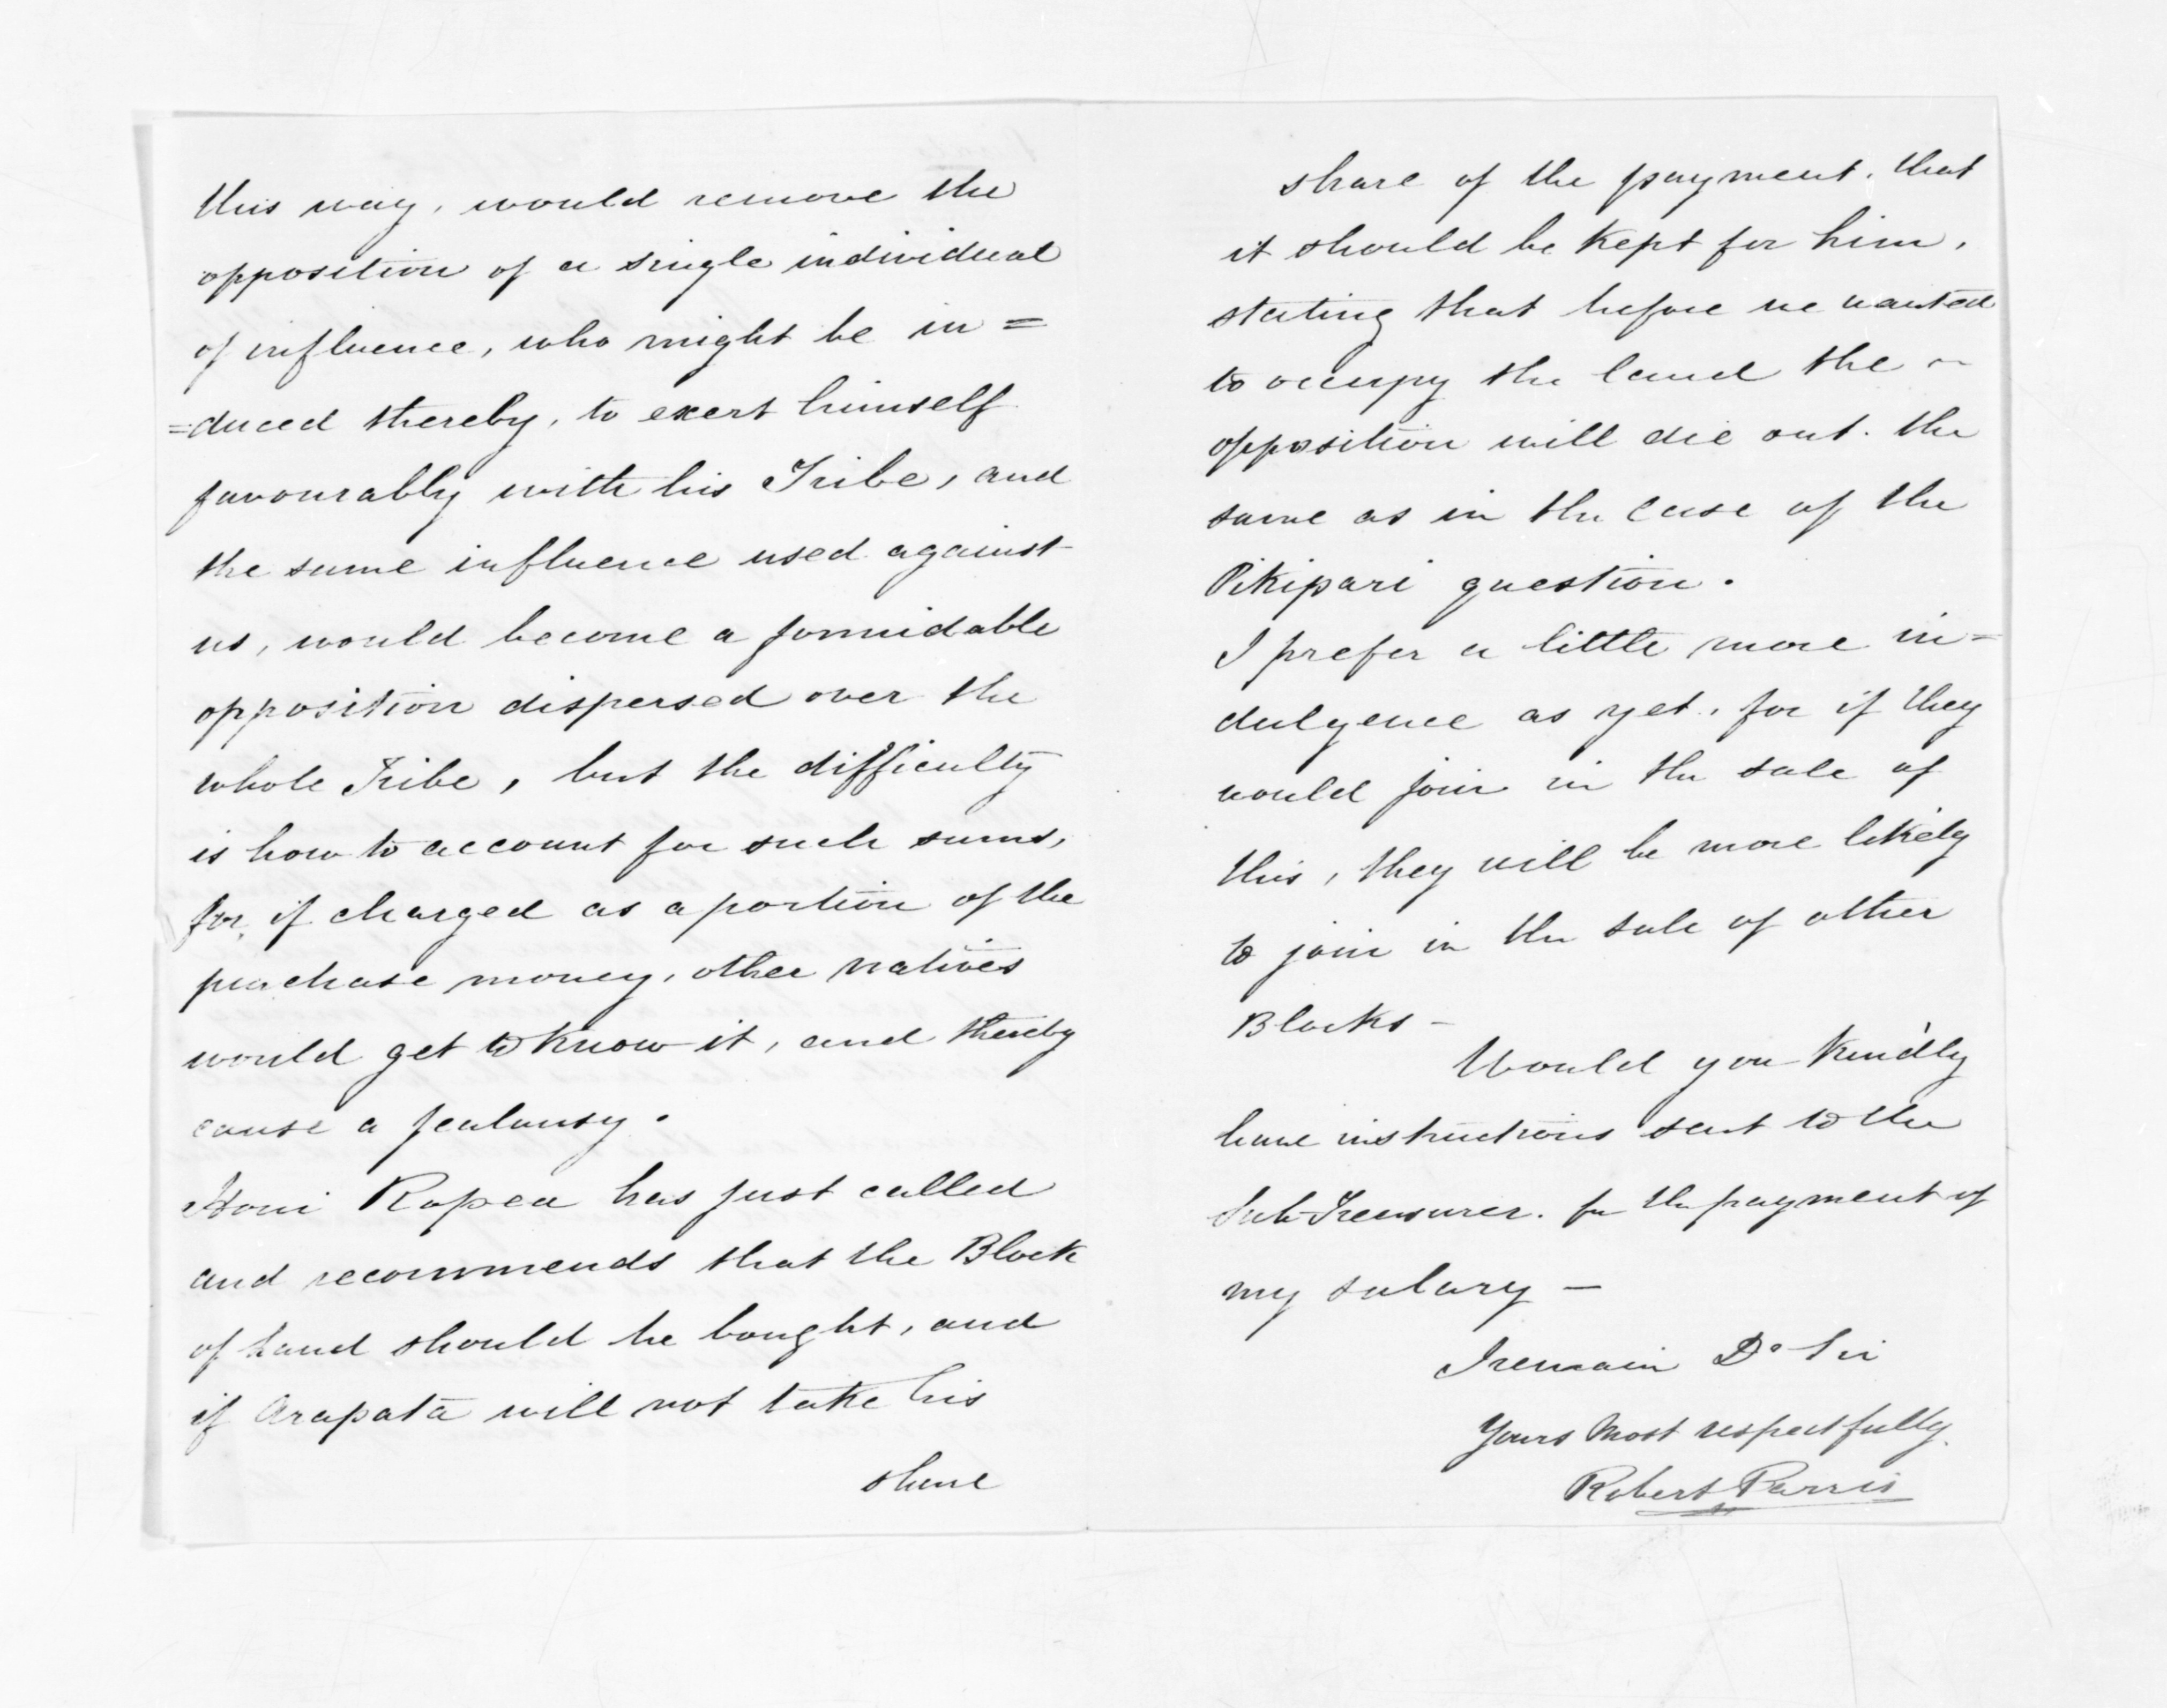 this way, would remove the
opposition of a single individual
of influence, who might be in=
=duced thereby, to exert himself
favourably with his Tribe, and
the same influence used against
us, would become a formidable
opposition dispersed over the
whole Tribe, but the difficulty
is how to account for such sums,
for, if charged as a portion of the
purchase money, other natives
would get to know it, and thereby
cause a jealousy.
Honi Ropea has just called
and recommends that the Block
of Land should be bought, and
if Arapata will not take his
share
share of the payment. that
it should be kept for him,
stating that before we wanted
to occupy the land the ~
opposition will die out. the
same as in the case of the
Pikipari question.
I prefer a little more in=
dulgence as yet, for if they
would join in the sale of
this, they will be more likely
to join in the sale of other
Blocks -
Would you kindly
have instructions sent to the
Sub-Treasurer. for the payment of
my salary -
I remain Dr Sir
Yours Most respectfully
Robert Parris